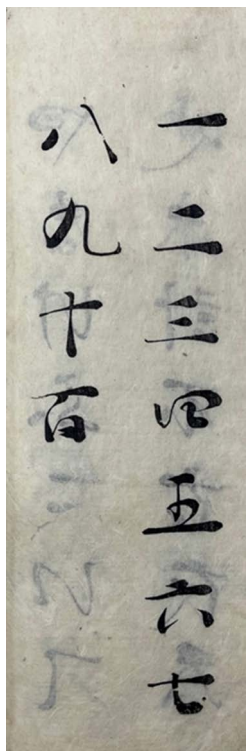 一二三四五六七
八九十百